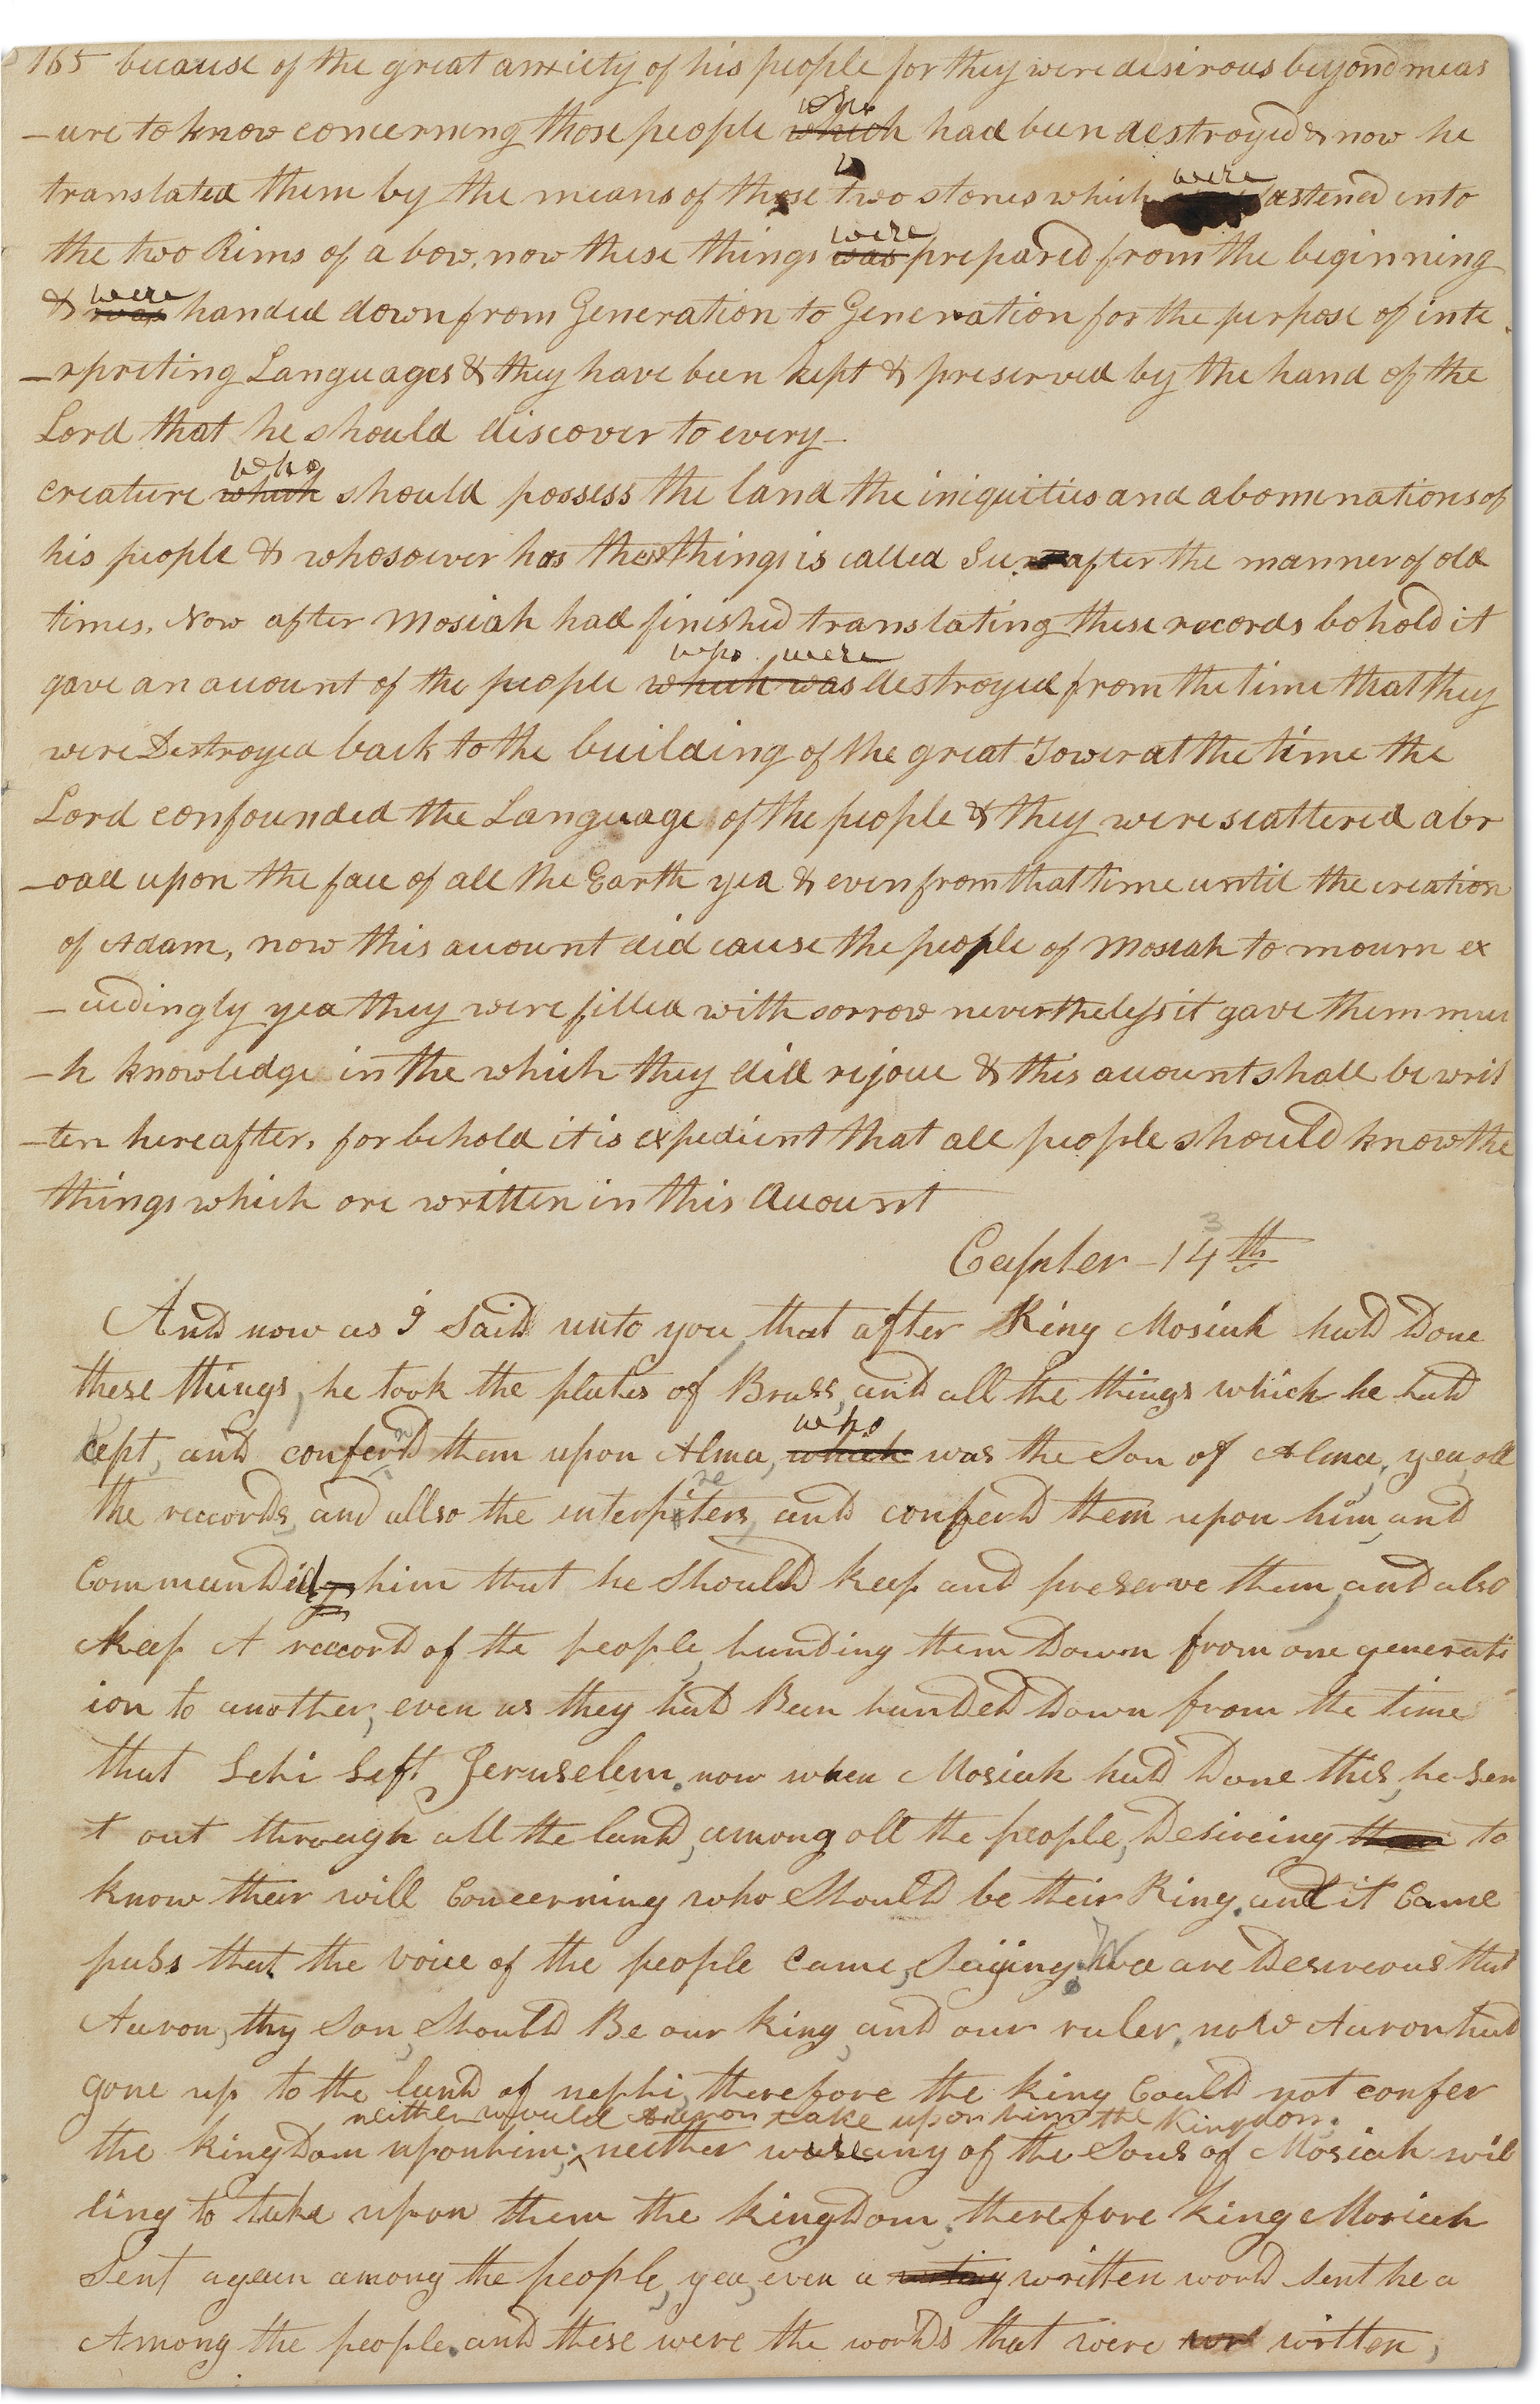 165 because of the great anxiety of his people for they were desirous beyond meas
who
-ure to know concerning those people which had been destroyed & now he
were
translated them by the means of those two stones which fastened into
were
the two Rims of a bow, now these things was prepared from the beginning
were
& was handed down from Generation to Generation for the perpose of inte
-rpreting Languages & they have been kept & preserved by the hand of the
Lord that he should discover to every-
who
creature which should possess the land the iniquities and abominations of
his people & whosoever has these things is called Seer after the manner of old
times. Now after Mosiah had finished translating these records behold it
who were
gave an account of the people which was destroyed from the time that they
were Destroyed back to the building of the great Tower at the time the
Lord confounded the Language of the people & they were scattered abr
-oad upon the face of all the Earth yea & even from that time until the creation
of Adam, now this account did cause the people of Mosiah to mourn ex
-ceedingly yea they were filled with sorrow nevertheless it gave them muc
-h knowledge in the which they did rejoice & this account shall be writ
-ten hereafter, for behold it is expedient that all people should know the
things which are written in this Account
3
Capter - 14th
And now as I Said unto you, that after King Mosiah had Done
these things, he took the plates of Brass, and all the things which he had
who
kept, and conferd them upon Alma, which was the Son of Alma, yea, all
re
the reccords, and allso the interpiters, and conferd them upon him, and
Commanded him that he Should keep and preserve them, and also
keep A reccord of the people, handing them Down from one generati
ion to another, even as they had Been handed Down from the time
that Lehi Left Jeruselem. now when Mosiah had Done this, he sen
t out through all the land, among all the people, Desireing them to
know their will Concerning who Should be their King. and it Came
pass that the voice of the people came, Saijing. We are Desireous that
Aaron, thy Son, Should Be our king, and our ruler. now Aaron had
gone up to the land of nephi, therefore the king Could not confer
neither would Aaron take upon him the Kingdom;
the kingdom upon him; neither were any of the Sons of Mosiah wil
ling to take upon them the kingdom. therefore king Mosiah
Sent again among the people, yea, even a writing written word sent he a
Among the people. and these were the words that were written,